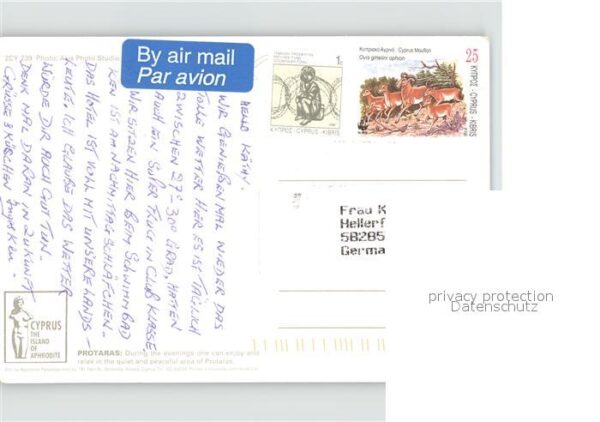 2CY 239 Photo: Alex Photo Studio
By air mail
Par avion
1c
ΚΥΠΡΟΣ-CYPRUS-KIBRIS
Κυπριακό Αγρινό / Cyprus Mouflon
Ovis gmelini ophion
25
ΚΥΠΡΟΣ CYPRUS KIBRIS
LIEBE KÄTHY.
WIR GENIEßEN MAL WIEDER DAS
TOLLE WETTER HIER ES IST TÄGLICH
ZWISCHEN 27°-30° GRAD, HATTEN
AUCH EIN SUPER FLUG IN CLUB KLASSE
WIR SITZEN HIER BEIM SCHWIMBAD
KEN IST AM NACHMITTAGSCHLÄFCHEN.
DAS HOTEL IST VOLL MIT UNSERE LANDS-
LEUTE. ICH GLAUBE DAS WETTER
WÜRDE DIR AUCH GUT TUN.
DENK MAL DARAN IN ZUKUNFT
GRÜSSE & KÜßCHEN
Frau K
Hellerf
58285
Germa
privacy protection
Datenschutz
CYPRUS
THE
ISLAND
OF
APHRODITE
PROTARAS: During the evenings one can enjoy and
relax in the quiet and peaceful area of Protaras.